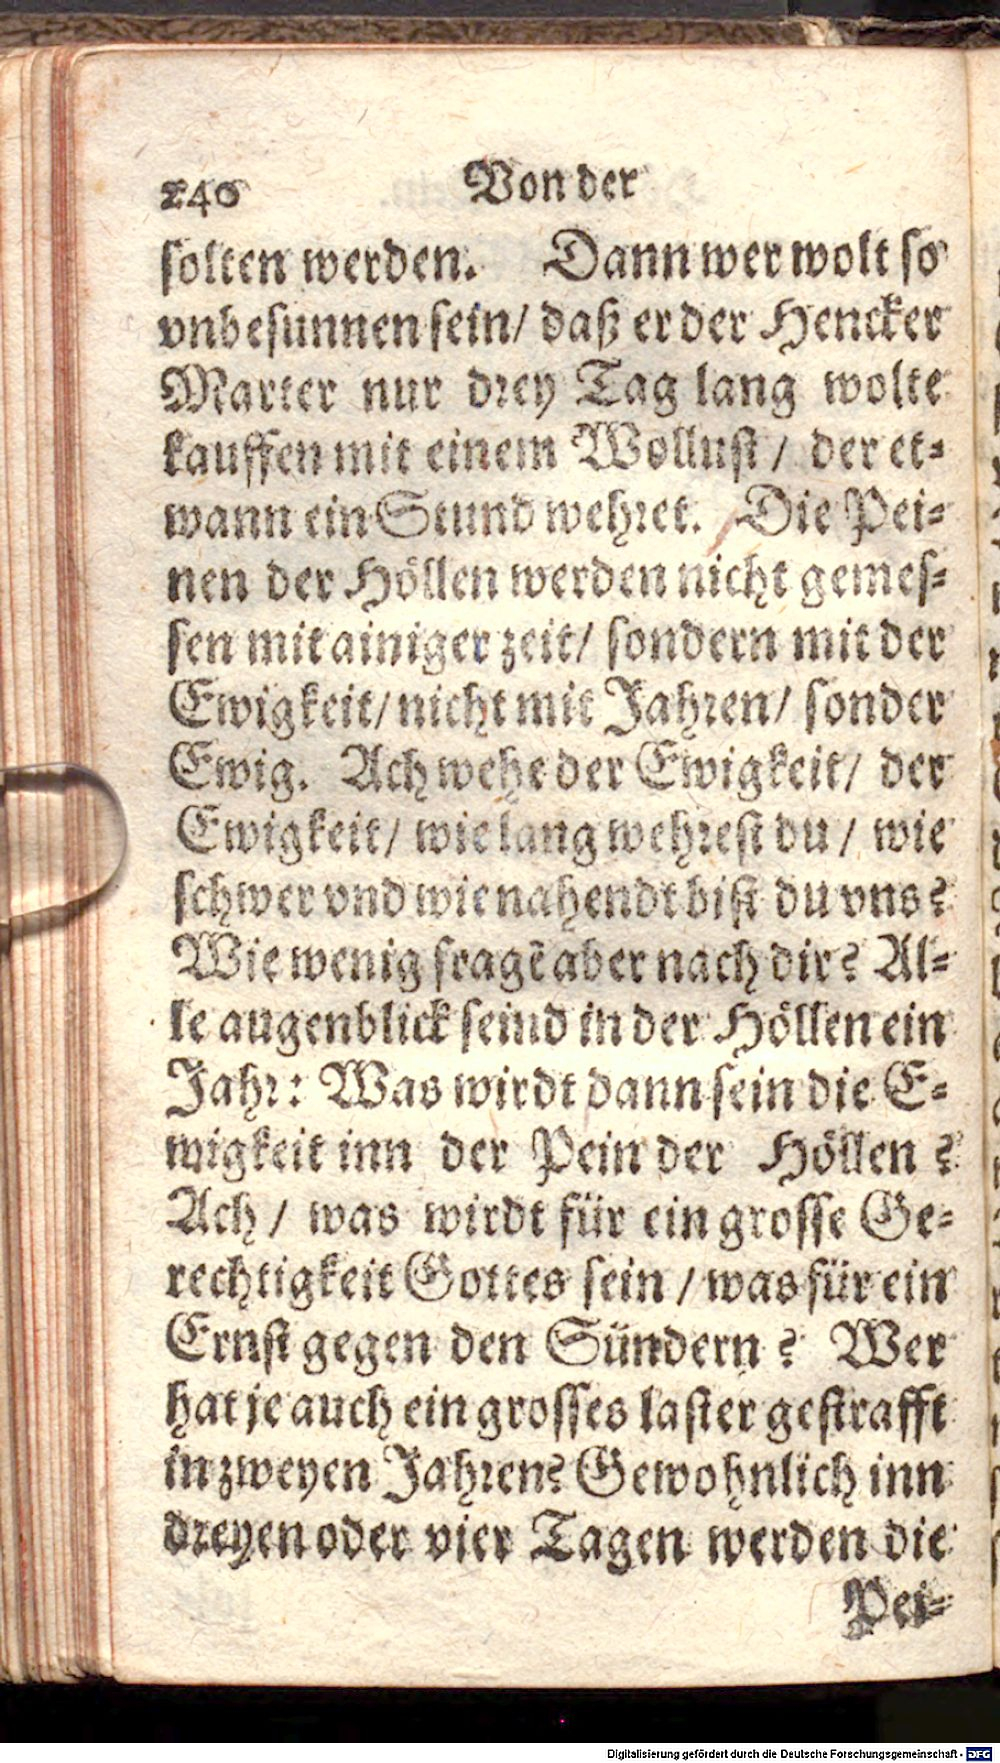 240 Von der
solten werden. Dann wer wolt so
vnbesunnen sein/ daß er der Hencker
Marter nur drey Tag lang wolte
kauffen mit einem Wollust/ der et-
wann ein Stund wehret. Die Pei-
nen der Höllen werden nicht gemes-
sen mit ainiger zeit/ sondern mit der
Ewigkeit/ nicht mit Jahren/ sonder
Ewig. Ach wehe der Ewigkeit/ der
Ewigkeit/ wie lang wehrest du/ wie
schwer vnd wie nahendt bist du vns?
Wie wenig fragẽ aber nach dir? Al-
le augenblick seind in der Höllen ein
Jahr: Was wirdt dann sein die E-
wigkeit inn der Pein der Höllen?
Ach/ was wirdt für ein grosse Ge-
rechtigkeit Gottes sein/ was für ein
Ernst gegen den Sündern? Wer
hat je auch ein grosses laster gestrafft
in zweyen Jahren? Gewohnlich inn
dreyen oder vier Tagen werden die
Pei-
Digitalisierung gefördert durch die Deutsche Forschungsgemeinschaft - DFG